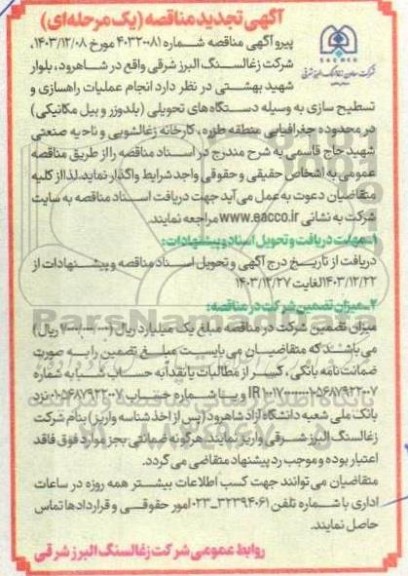 آگهی تجدید مناقصه (یک مرحله‌ای)
پیرو آگهی مناقصه شماره ۴۰۳۲۰۰۸۱ مورخ ۱۴۰۳/۱۲/۰۸،
شرکت زغالسنگ البرز شرقی واقع در شاهرود، بلوار
شهید بهشتی در نظر دارد انجام عملیات راهسازی و
تسطیح سازی به وسیله دستگاه های تحویلی (بلدوزر و بیل مکانیکی)
در محدوده جغرافیایی منطقه طزره، کارخانه زغالشویی و ناحیه صنعتی
شهید حاج قاسمی به شرح مندرج در اسناد مناقصه را از طریق مناقصه
عمومی به اشخاص حقیقی و حقوقی واجد شرایط واگذار نماید. لذا از کلیه
متقاضیان دعوت به عمل می آید جهت دریافت اسناد مناقصه به سایت
شرکت به نشانی www.eacco.ir مراجعه نمایند.
۱ـ مهلت دریافت و تحویل اسناد و پیشنهادات:
دریافت از تاریخ درج آگهی و تحویل اسناد مناقصه و پیشنهادات از
۱۴۰۳/۱۲/۲۲ لغایت ۱۴۰۳/۱۲/۲۷
۲ـ میزان تضمین شرکت در مناقصه:
میزان تضمین شرکت در مناقصه مبلغ یک میلیارد ریال
می باشد که متقاضیان می بایست مبلغ تضمین را به صورت
ضمانت نامه بانکی، کسر از مطالبات یا نقداً به حساب شبا به شماره
و یا شماره حساب ۰۱۰۵۶۸۷۹۲۲۰۰۷ نزد
بانک ملی شعبه دانشگاه آزاد شاهرود (پس از اخذ شناسه واریز) بنام شرکت
زغالسنگ البرز شرقی واریز نمایند. هرگونه ضمانتی بجز موارد فوق فاقد
اعتبار بوده و موجب رد پیشنهاد متقاضی می گردد.
متقاضیان می توانند جهت کسب اطلاعات بیشتر همه روزه در ساعات
اداری با شماره تلفن ۳۲۳۹۴۰۶۱-۰۲۳ امور حقوقی و قراردادها تماس
حاصل نمایند.
روابط عمومی شرکت زغالسنگ البرز شرقی